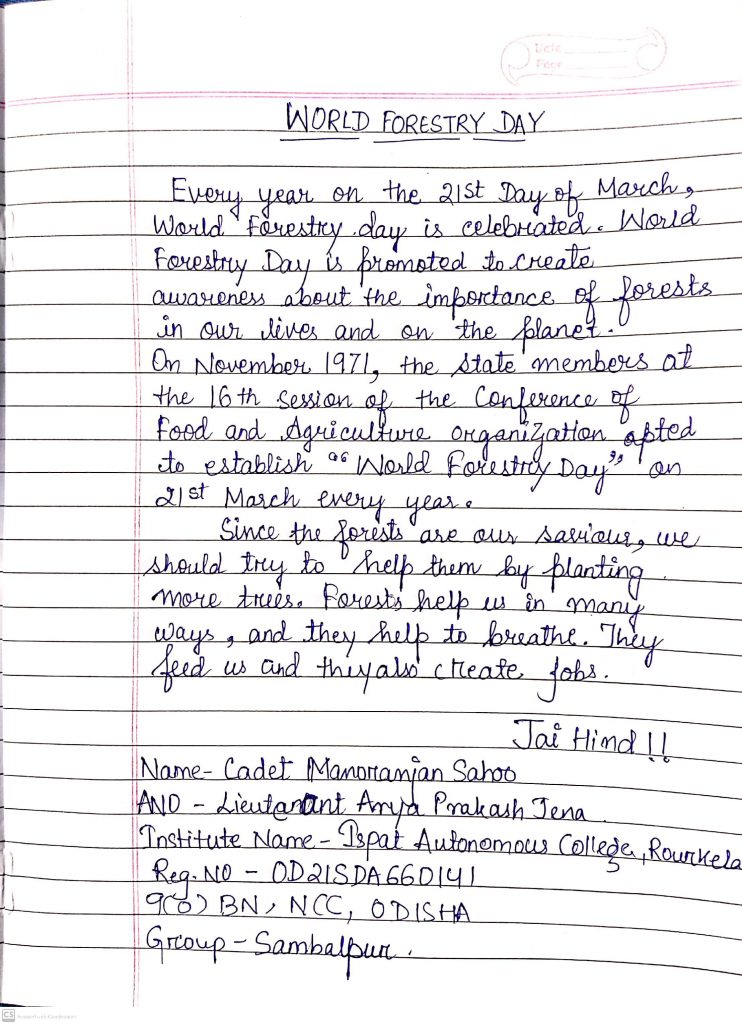 Date
Page
WORLD FORESTRY DAY
Every year on the 21st Day of March,
World Forestry day is celebrated. World
Forestry Day is promoted to create
awareness about the importance of forests
in our lives and on the planet.
On November 1971, the state members at
the 16th session of the Conference of
Food and Agriculture organization opted
to establish "World Forestry Day" on
21st March every year.
Since the forests are our saviour, we
should try to help them by planting
more trees. Forests help us in many
ways, and they help to breathe. They
feed us and they also create jobs.
Jai Hind !!
Name- Cadet Manoranjan Sahoo
ANO - Lieutanant Arya Prakash Jena
Institute Name - Ispat Autonomous College, Rourkela
Reg. NO - OD21SDA660141
9(O) BN, NCC, ODISHA
Group - Sambalpur.
CS Scanned with CamScanner